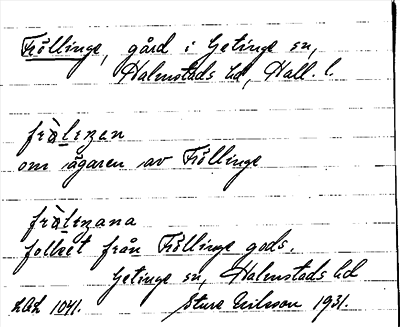 Fröllinge, gård i Getinge sn,
Halmstads hd, Hall. l.
frälızan
om ägaren av Fröllinge
frälızana
folket från Fröllinge gods.
Getinge sn, Halmstads hd
LUL 1041. Sture Nilsson 1931.